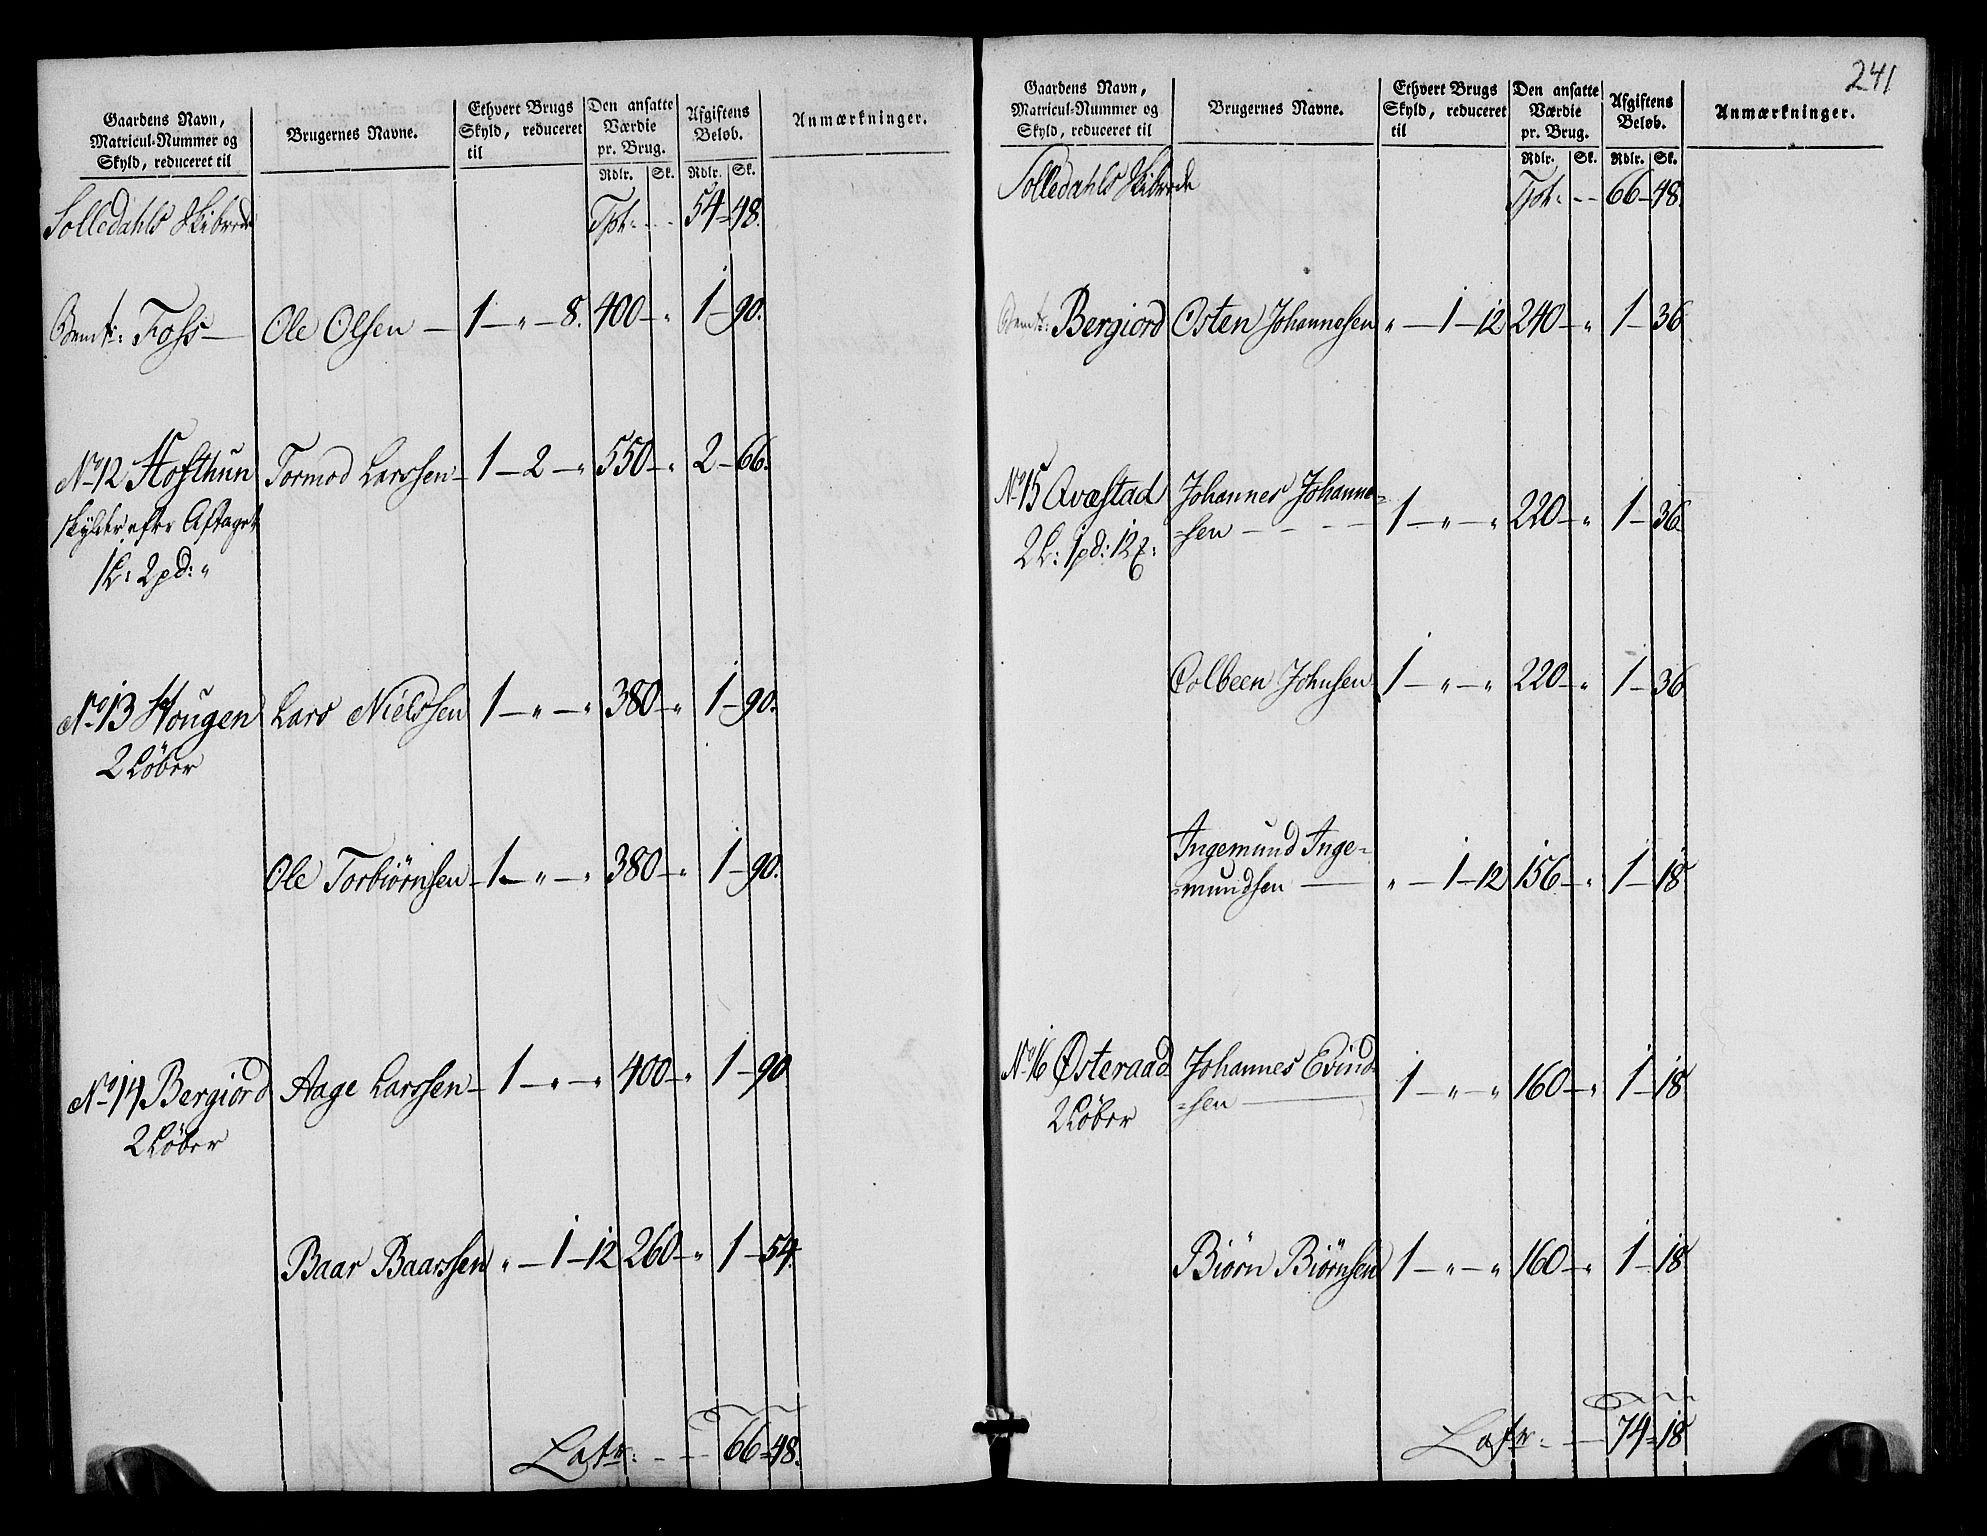 Gaardens Navn, Matricul-Nummer og Skyld, reduceret til
Brugernes Navne.
Ethvert Brugs Skyld, reduceret til
Den ansatte Værdie pr. Brug.
Afgiftens Beløb.
Anmærkninger.
Rdlr. Sk. Rdlr. Sk.
Solledahls Skibrede Tpt: 54 = 48.
Foss — Ole Olsen — 1 — " — 8. 400 — " 1 — 90.
No 12 Hofthun Tormod Larssen — 1 — 2 — " 550 — " 2 — 66.
skylder efter Aftaget
1 L: 2 pd: "
No 13 Hougen Lars Nielssen 1 — " — " 380 — " 1 — 90.
2 Løber
Ole Torbiørnsen — 1 — " — " 380 — " 1 — 90.
No 14 Bergiord Aage Larssen — 1 — " — " 400 — " 1 — 90
2 Løber
Baar Baarssen " — 1 — 12 260 — " 1 — 54.
Latr: 66 = 48.
241
Gaardens Navn, Matricul-Nummer og Skyld, reduceret til
Brugernes Navne.
Ethvert Brugs Skyld, reduceret til
Den ansatte Værdie pr. Brug.
Afgiftens Beløb.
Anmærkninger.
Rdlr. Sk. Rdlr. Sk.
Solledahls Skibrede Tpt: 66 — 48.
Bergiord Osten Johannesen " — 1 — 12 240 — " 1 — 36.
No 15 Qvæstad Johannes Johanne=
2 L: 1 pd: 12 =sen 1 — " — " 220 — " 1 — 36.
Colbeen Johnsen 1 — " — " 220 — " 1 — 36
Ingemund Inge=
=mundsen — " — 1 — 12 156 — " 1 — 18
No 16 Østeraad Johannes Evind=
2 Løber =sen 1 — " — " 160 — " 1 — 18
Biørn Biørnsen 1 — " — " 160 — " 1 — 18
Latr: 74 = 18